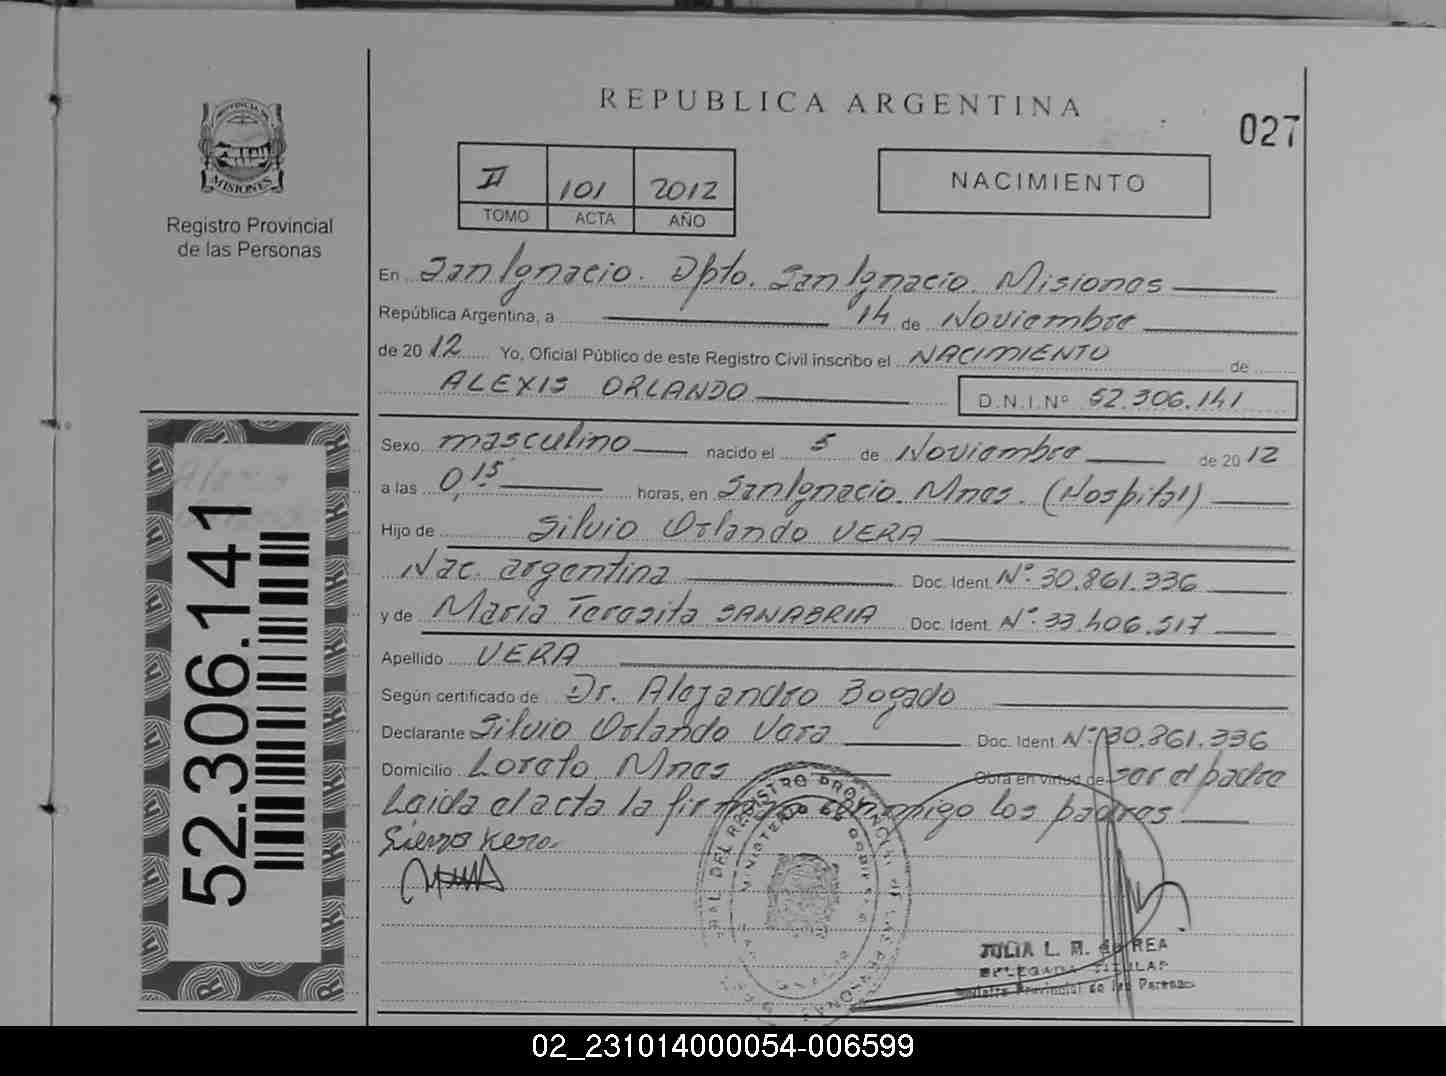 REPUBLICA ARGENTINA
027
PROVINCIA DE
MISIONES
Registro Provincial
de las Personas
II 101 2012
TOMO ACTA AÑO
NACIMIENTO
En San Ignacio. Dpto. San Ignacio. Misiones
República Argentina, a 14 de Noviembre
de 2012 Yo, Oficial Público de este Registro Civil inscribo el NACIMIENTO de
ALEXIS ORLANDO D.N.I.Nº 52.306.141
Sexo masculino nacido el 5 de Noviembre de 2012
a las 0,15 horas, en San Ignacio. Mnes. (Hospital)
Hijo de Silvio Orlando VERA
Nac. argentina Doc. Ident. Nº: 30.861.336
y de Maria Teresita SANABRIA Doc. Ident. Nº: 33.406.517
Apellido VERA
Según certificado de Dr. Alejandro Bogado
Declarante Silvio Orlando Vera Doc. Ident. Nº 30.861.336
Domicilio Loreto. Mnes Obra en virtud de ser el padre
Leida el acta la firman conmigo los padres
52.306.141
JULIA L. M. de REA
DELEGADA TITULAR
Registro Provincial de las Personas
02_231014000054-006599